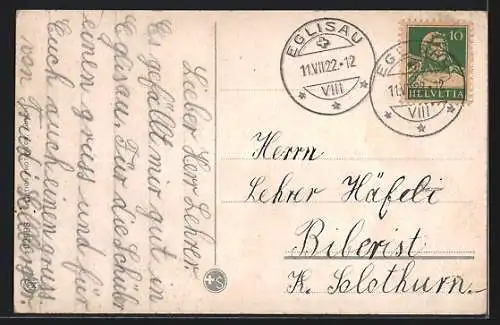 Lieber Herr Lehrer
Es gefällt mir gut in
Eglisau. Für die Schüler
einen gruss und für
Euch auch einen gruss.
von
EGLISAU
11.VII.22.-12
VIII
EGLISAU
11.VII.22.-12
VIII
10
HELVETIA
Herrn
Lehrer Häfeli
Biberist
K. Solothurn.